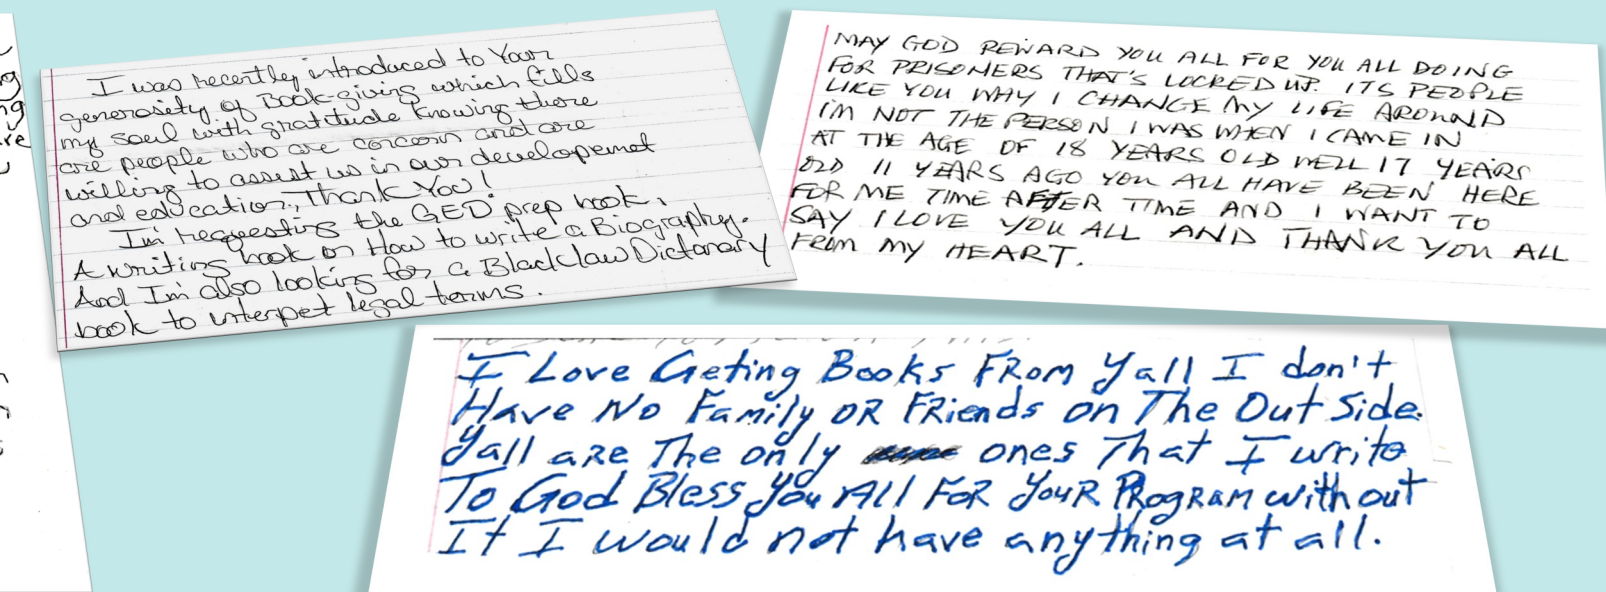 I was recently introduced to Your
generosity of Book-giving which fills
my soul with gratitude knowing there
are people who are concorn and are
willing to assist us in our developemet
and education, Thank You!
I'm requesting the GED prep book,
A writing book on How to write a Biography.
And I'm also looking for a Black law Dictonary
book to interpet legal terms.
MAY GOD REWARD YOU ALL FOR YOU ALL DOING
FOR PRISONERS THAT'S LOCKED UP. ITS PEOPLE
LIKE YOU WHY I CHANGE MY LIFE AROUND
I'M NOT THE PERSON I WAS WHEN I CAME IN
AT THE AGE OF 18 YEARS OLD WELL 17 YEARS
OLD 11 YEARS AGO YOU ALL HAVE BEEN HERE
FOR ME TIME AFTER TIME AND I WANT TO
SAY I LOVE YOU ALL AND THANK YOU ALL
FROM MY HEART.
I Love Geting Books From Yall I don't
Have No Family OR FRiends on The Out Side.
Yall aRe The only ones That I write
To God Bless You All FoR YouR PRogRam without
It I would not have anything at all.